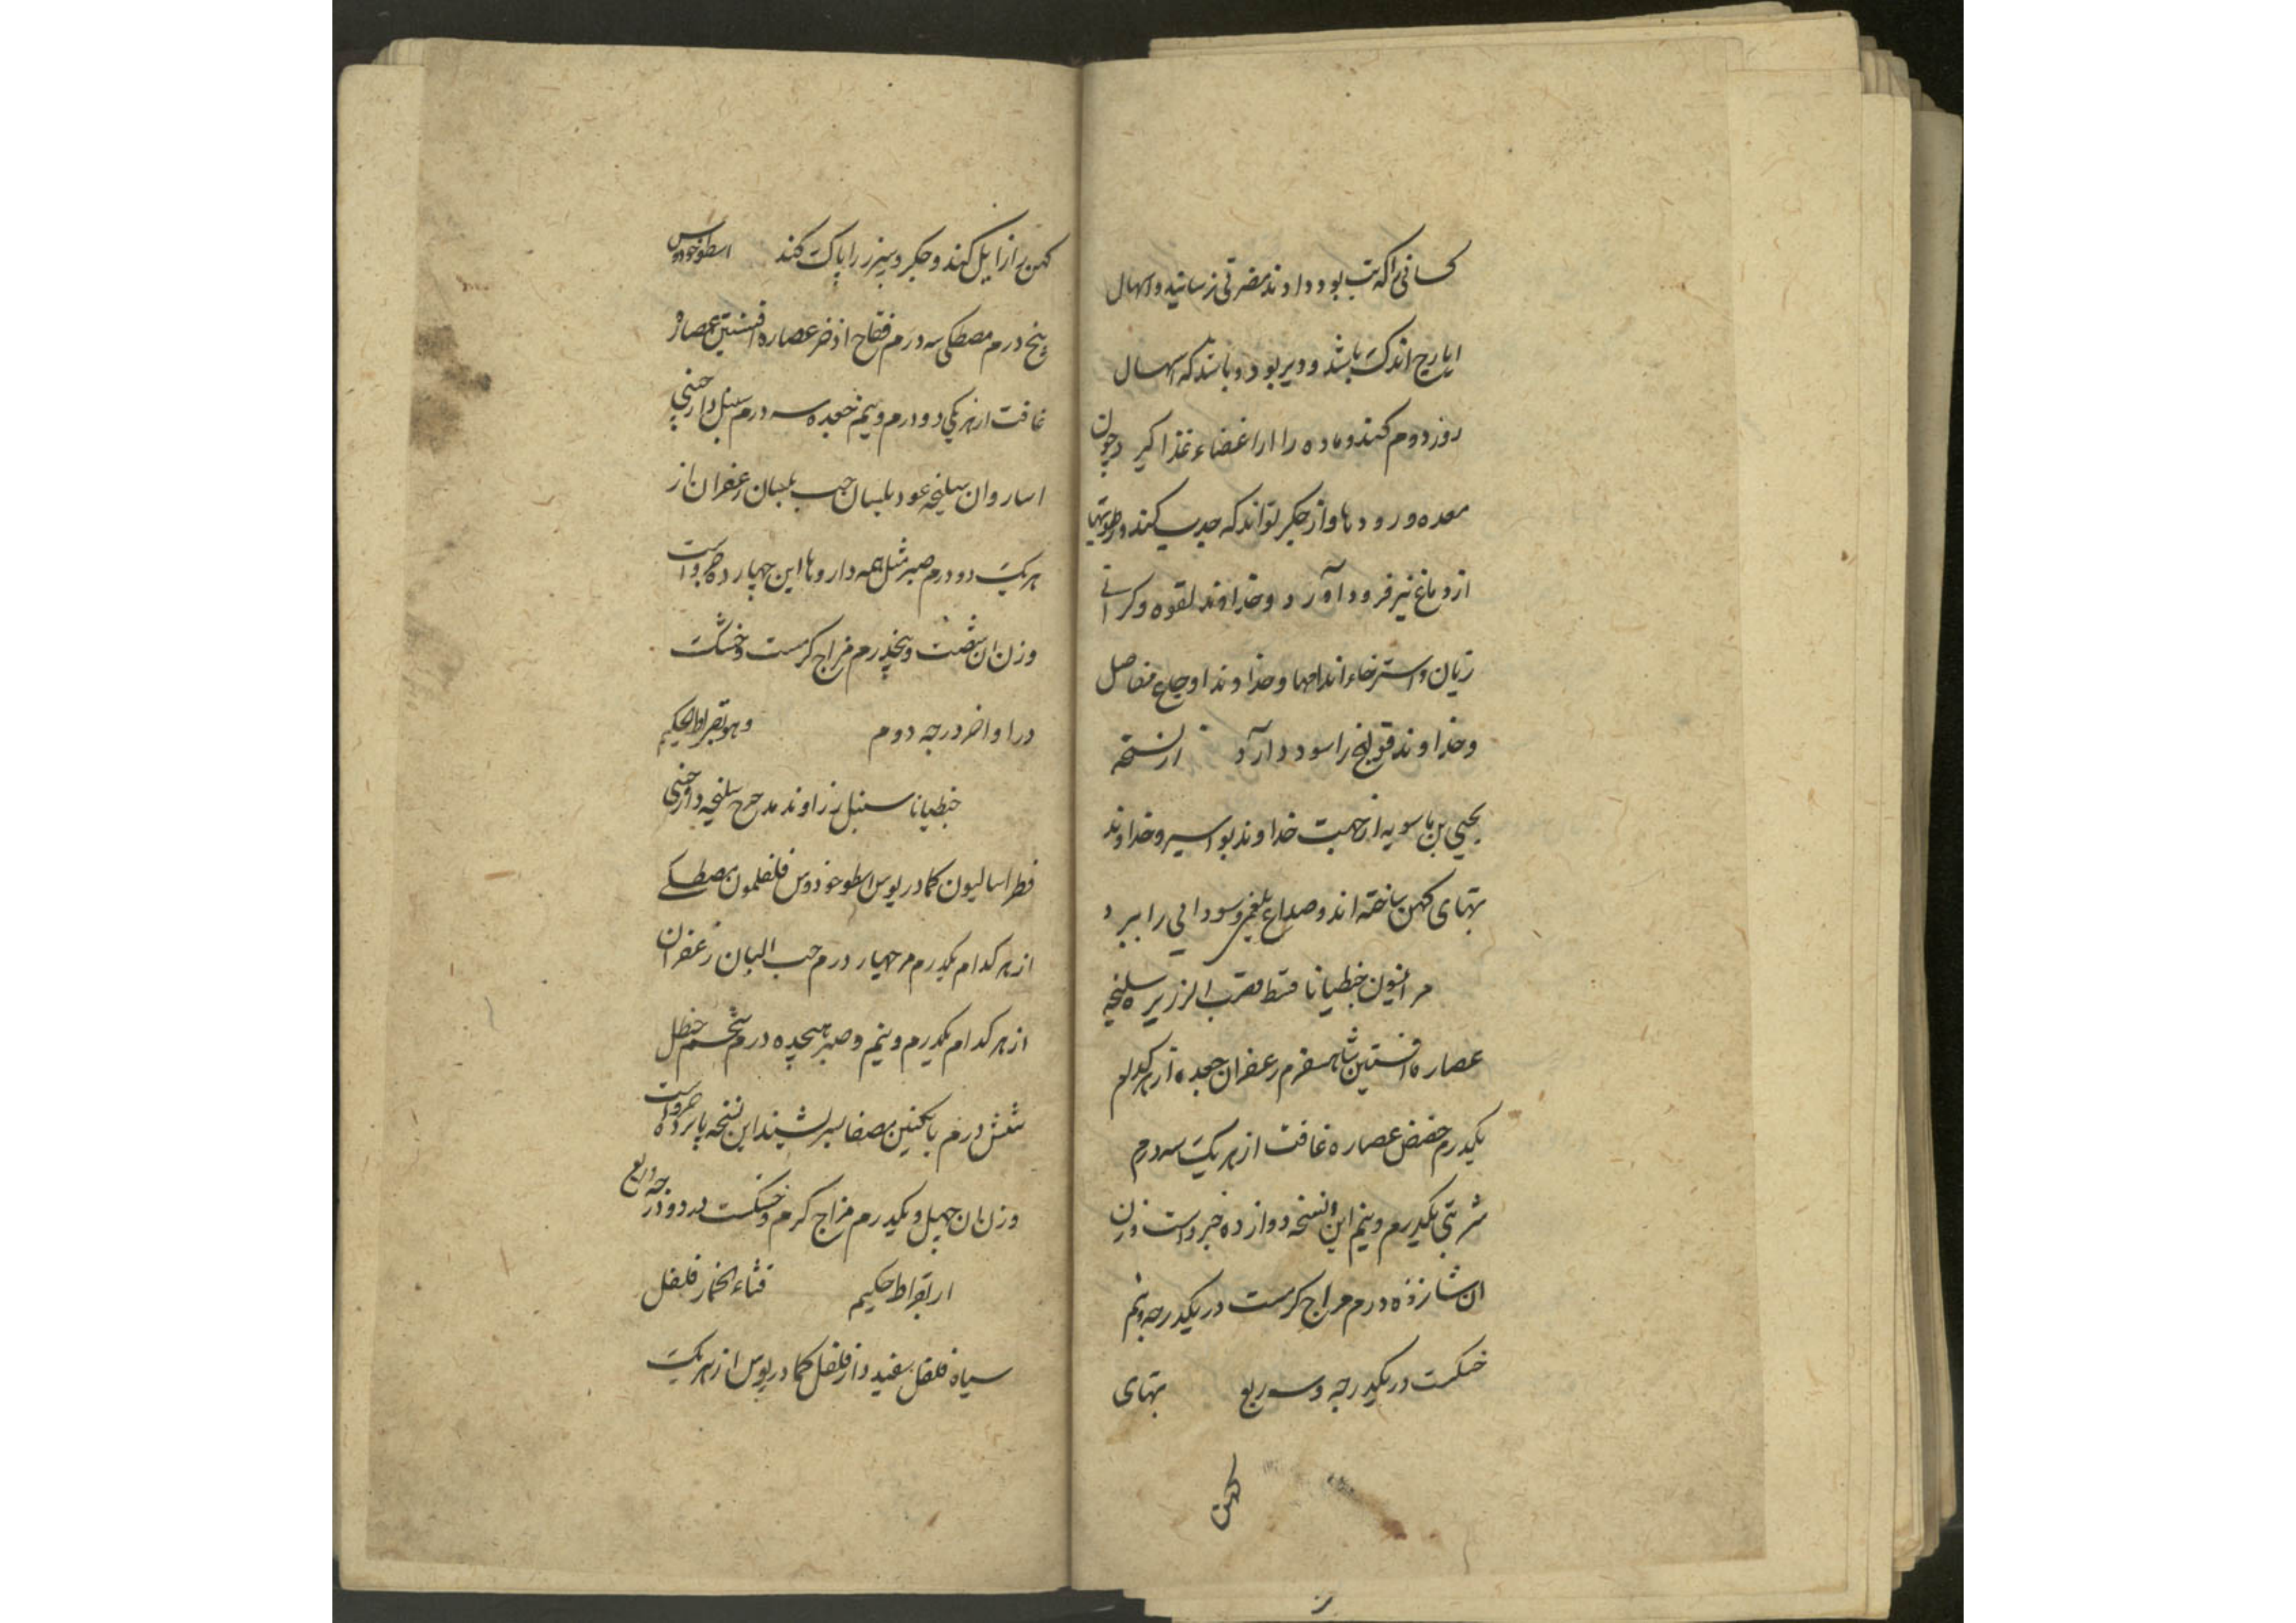 کسانی را که تب بود دادند مضرتی نرسانید و اسهال
ایارج اندک باشد و دیر بود و باشد که اسهال
روز دوم کند و ماده را از اعضاء غذا گیر و چون
معده و رودها و از جگر تواند که جذب کند و رطوبتها
از دماغ نیز فرود آورد و خداوند لقوه و کرانی
زبان و استرخاء اندامها و خداوند اوجاع مفاصل
و خداوند قولنج را سود دارد از نسخه
یحیی بن ماسویه از جهت خداوند بواسیر و خداوند
تبهای کهن ساخته اند و صداع بلغمی و سودایی را ببرد
مر افیون جنطیانا قسط قصب الزریره سلیخه
عصاره افسنتین شاهسفرم زعفران جعده از هر کدام
یکدرم حضض عصاره غافت از هر یک سه درم
شربتی یکدرم و نیم این نسخه دوازده جزو است وزن
ان شانزده درم مزاج کرمست در یکدرجه و نیم
خشکست در یکدرجه و سه ربع تبهای
کهن
کهن را زایل کند و جگر و سپرز را پاک کند اسطوخودوس
پنج درم مصطکی سه درم فقاح اذخر عصاره افسنتین عصاره
غافت از هر یکی دو درم و نیم جعده سه درم سنبل دارچینی
اسارون سلیخه عود بلسان حب بلسان زعفران از
هر یک دو درم صبر مثل همه داروها این چهارده جزو است
وزن ان شصت و پنجدرم مزاج کرمست و خشکست
در اواخر درجه دوم وهو بقراط الحکیم
جنطیانا سنبل زراوند مدحرج سلیخه دارچینی
فطراسالیون کمادریوس اسطوخودوس فلفلمون مصطکے
از هر کدام یکدرم مر چهار درم حب البان زعفران
از هر کدام یکدرم و نیم و صبر هیجده درم شحم حنظل
شش درم با انکبین مصفا بسرشند این نسخه پانزده جزو است
وزن ان چهل و یکدرم مزاج کرم و خشکست در دو درجه و ربع
از بقراط حکیم قثاء الحمار فلفل
سیاه فلفل سفید دار فلفل کمادریوس از هر یک